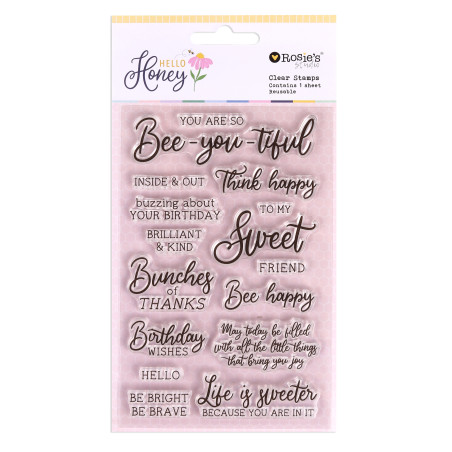 HELLO
Honey
Rosie's
studio
Clear Stamps
Contains 1 sheet
Reusable
YOU ARE SO
Bee-you-tiful
INSIDE & OUT
Think happy
buzzing about
YOUR BIRTHDAY
TO MY
Sweet
FRIEND
BRILLIANT
& KIND
Bunches
of
THANKS
Bee happy
Birthday
WISHES
May today be filled
with all the little things
that bring you joy
HELLO
BE BRIGHT
BE BRAVE
Life is sweeter
BECAUSE YOU ARE IN IT